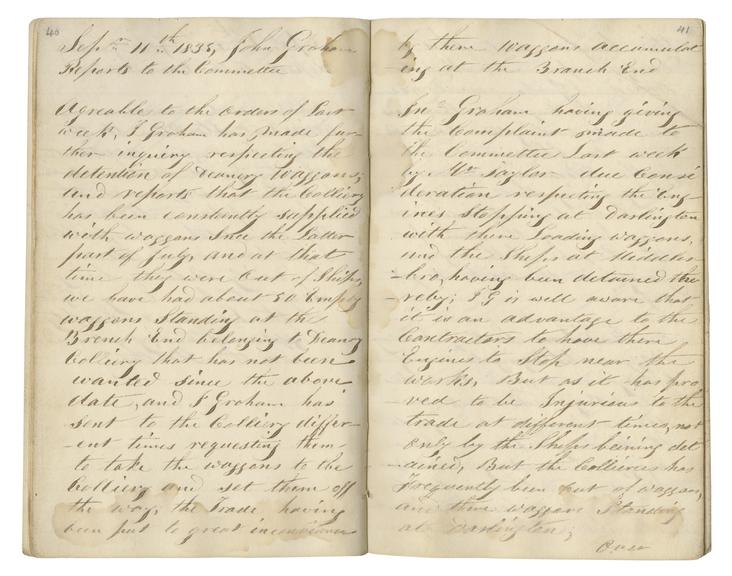 40
Septr 11th 1835, John Graham
Reports to the Committee
Agreable to the orders of Last
week, J Graham has made fur
ther inquiry respecting the
detention of Deanery Waggons,
and reports that the Colliery
has been constantly supplied
with waggons Since the Latter
part of July, and at that
time they were Out of Ships,
we have had about 50 Empty
waggons Standing at the
Branch End belonging to Deanery
Colliery that has not been
wanted since the above
date, and J Graham has
sent to the Colliery differ-
-ent times requesting them
to take the waggons to the
Colliery and set them off
the way, the Trade having
been put to great inconvience
41
by there waggons accumulat
-ing at the Branch End
Jno Graham having giving
the Complaint made to
the Committee Last week
by Mr Taylor due Consi
deration respecting the Eng-
ines Stopping at Darlington
with there Loading waggons,
and the Ships at Middles-
-bro, having been detained the
-reby; J G is well aware that
it is an advantage to the
Contractors to have there
Engines to Stop near the
works, But as it has pro
-ved to be Injurious to the
trade at different times, not
Only by the Ships beining det
-ained, But the Collieries has
frequently been Out of waggons,
and there waggons Standing
at Darlington;
Over